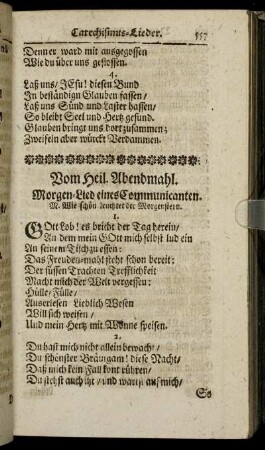 Catechismus-Lieder. 557
Denn er ward mit ausgegossen
Wie du über uns geflossen.
4.
Laß uns/ JEsu! diesen Bund
In beständign Glauben fassen/
Laß uns Sünd und Laster hassen/
So bleibt Seel und Hertz gesund.
Glauben bringt uns dort zusammen;
Zweifeln aber würckt Verdammen.
Vom Heil. Abendmahl.
Morgen-Lied eines Communicanten.
M. Wie schön leuchtet der Morgenstern.
1.
GOtt Lob! es bricht der Tag herein/
An dem mein GOtt mich selbst lud ein
An seinem Tisch zu essen:
Das Freuden-mahl steht schon bereit;
Der süssen Trachten Trefflichkeit
Macht mich der Welt vergessen:
Hülle/ Fülle/
Auserlesen Lieblich Wesen
Will sich weisen/
Und mein Hertz mit Wonne speisen.
2.
Du hast mich nicht allein bewacht/
Du schönster Bräutgam! diese Nacht/
Daß mich kein Fall kont rühren/
Du stehst auch itzt/ und wartst auf mich/
So